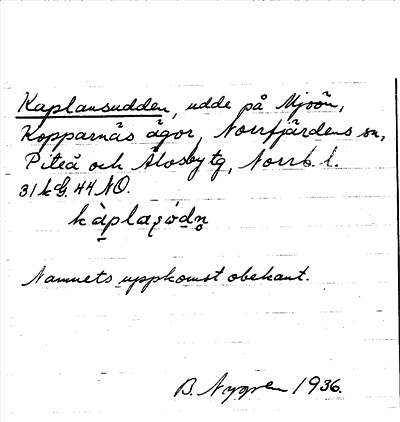 Kaplansudden, udde på Mjoön,
Kopparnäs ägor, Norrfjärdens sn,
Piteå och Älvsby tg, Norrb. l.
31 k G. 44 NO.
Namnets uppkomst obekant.
B. Nygren 1936.